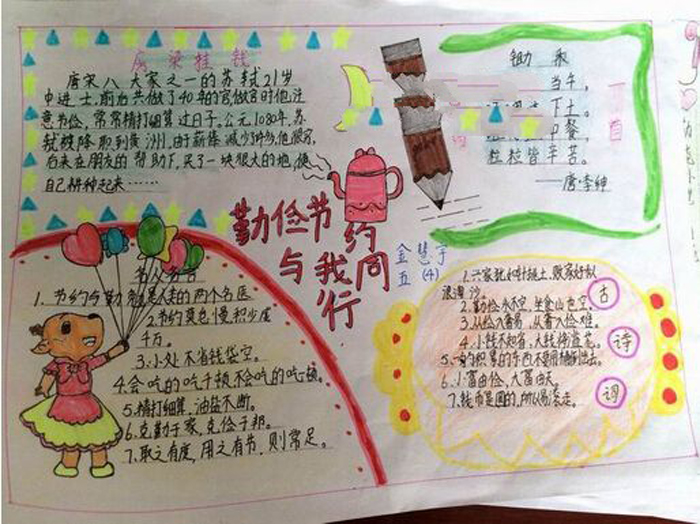 房梁挂钱
唐宋八大家之一的苏轼21岁
中进士,前后共做了40年的官,做官时他注
意节俭,常常精打细算过日子。公元1080年,苏
轼被降职到黄州,由于薪俸减少
后来在朋友的帮助下,买了一块很大的地,便
自己耕种起来……
锄禾
当午,
下土。
餐
粒粒皆辛苦。
——唐·李绅
一首
勤俭节约
与我同行
金慧宇
五(4)
名人名言
1.节约与勤 的两个名医
2.节约莫怠慢,积少成
千万。
3.小处不省钱袋空。
4.会吃的吃千顿,不会吃的吃一顿。
5.精打细算,油盐不断。
6.克勤于家,克俭于邦。
7.取之有度,用之有节,则常足。
1.兴家犹如针挑土,败家好似
浪淘沙
2.勤俭永不空,坐食山也空。
3.从俭入奢易,从奢入俭难。
4.小钱不知省,大钱将滥花。
5.
6.小富由俭,大富由天。
7.钱币是圆的,所以易滚走。
古
诗
词